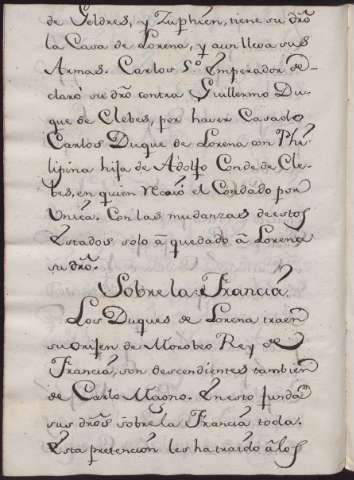 de Geldres, y Zuphen, tiene su dro
la Casa de Lorena, y aun lleva sus
Armas. Carlos 5.º Emperador de-
claró su dro contra Guillermo Du-
que de Clebes, por haver Casado
Carlos Duque de Lorena con Phi-
lipina hija de Adolfo Conde de Cle-
bes, en quien recaió el Condado por
Unica. Con las mudanzas de estos
Estados solo à quedado à Lorena
su dro.
Sobre la Francia.
Los Duques de Lorena traen
su origen de Morobeo Rey de
Francia, son descendientes tambien
de Carlo Magno. En esto fundan
sus dros sobre la Francia toda.
Esta pretención les ha traído à los